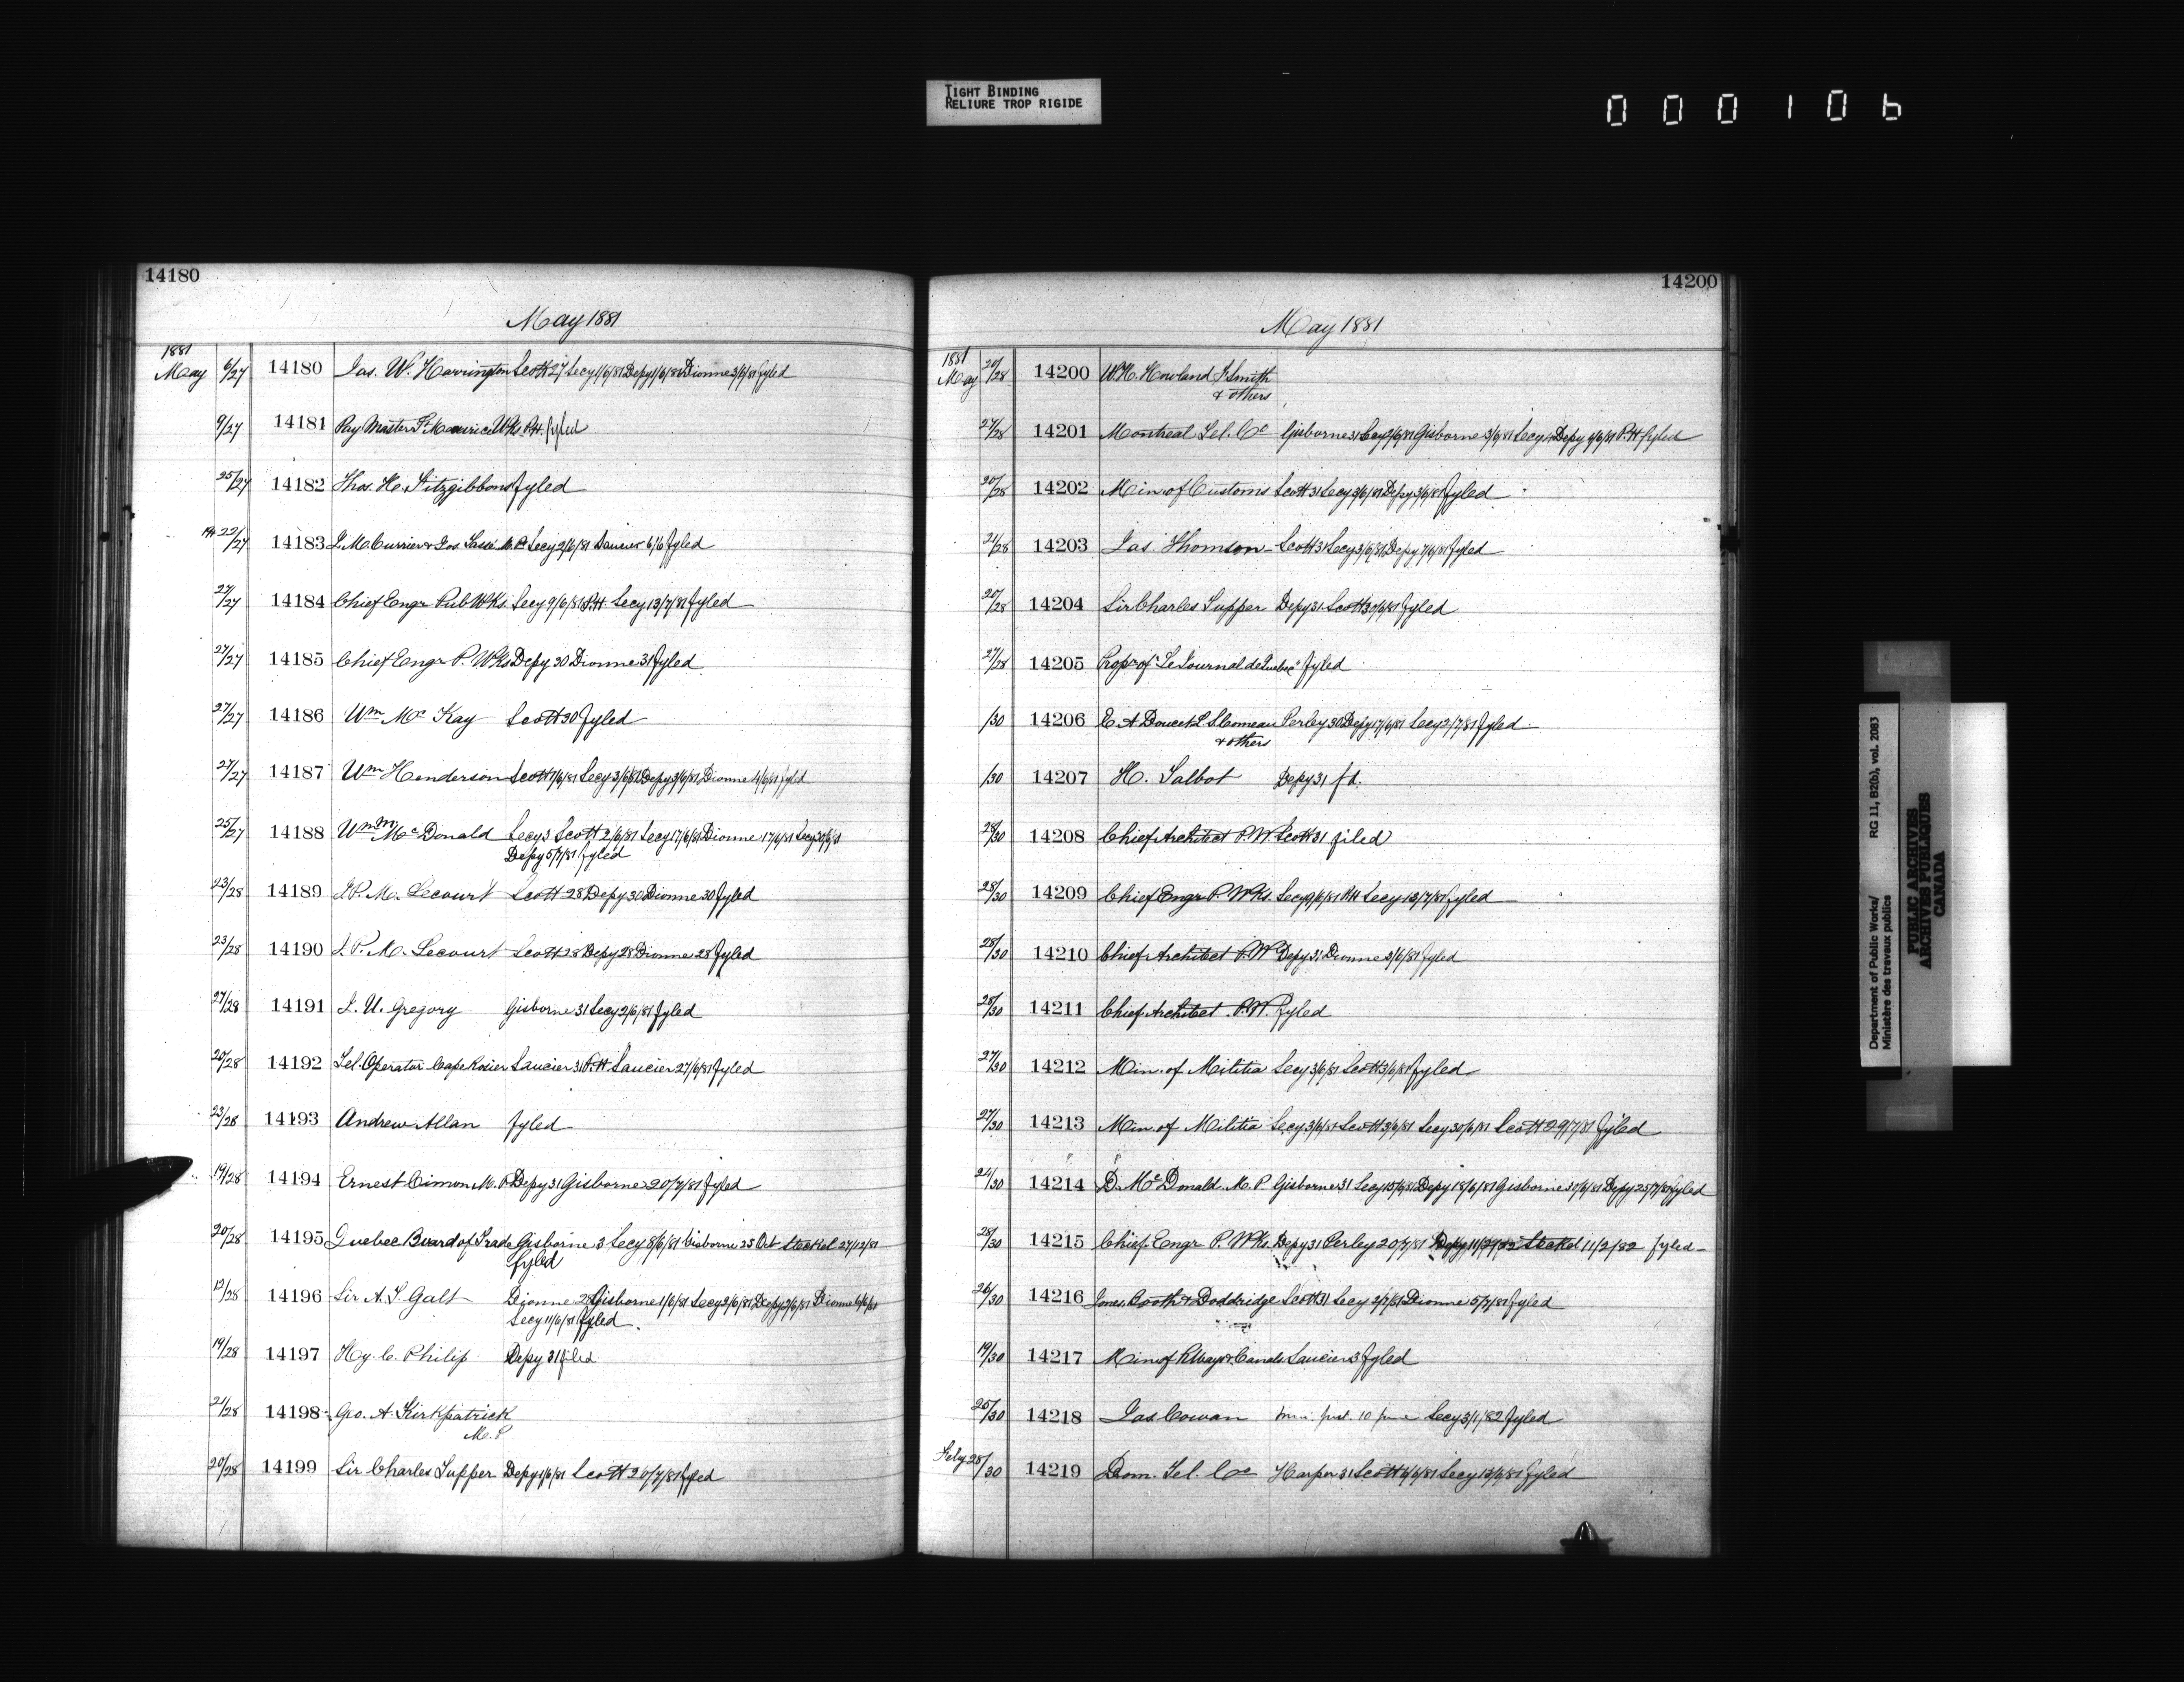 TIGHT BINDING
RELIURE TROP RIGIDE
000106
14180
May 1881
1881
May 6/27 14180 Jas. W. Harrington Scott 27 Secy 1/6/81 Depy 1/6/81 Dionne 3/6/81 fyled
9/27 14181 Pay Master St Maurice Wks P.H. fyled
25/27 14182 Thos. H. Fitzgibbons fyled
22/27 14183 J. M. Currier & Jos Tassé M.P. Secy 2/6/81 Saucier 6/6 fyled
27/27 14184 Chief Engr Pub Wks. Secy 9/6/81 P.H. Secy 13/7/81 fyled
27/27 14185 Chief Engr P. Wks Depy 30 Dionne 31 fyled
27/27 14186 Wm Mc Kay Scott 30 fyled
27/27 14187 Wm Henderson Scott 1/6/81 Secy 3/6/81 Depy 3/6/81 Dionne 4/6/81 fyled
25/27 14188 Wm M. Mc Donald Secy 3 Scott 2/6/81 Secy 17/6/81 Dionne 17/6/81 Secy 30/6/81
Depy 5/7/81 fyled
23/28 14189 J. P. M. Lecourt Scott 28 Depy 30 Dionne 30 fyled
23/28 14190 J. P. M. Lecourt Scott 28 Depy 28 Dionne 28 fyled
27/28 14191 J. U. Gregory Gisborne 31 Secy 2/6/81 fyled
20/28 14192 Tel. Operator Cape Rosier Saucier 31 P.H. Saucier 27/6/81 fyled
23/28 14193 Andrew Allan fyled
19/28 14194 Ernest Cimon M.P. Depy 31 Gisborne 20/7/81 fyled
20/28 14195 Quebec Board of Trade Gisborne 3 Secy 8/6/81 Gisborne 25 Oct Steckel 27/12/81
fyled
12/28 14196 Sir A. T. Galt Dionne 28 Gisborne 1/6/81 Secy 2/6/81 Depy 2/6/81 Dionne 6/6/81
Secy 11/6/81 fyled.
19/28 14197 Hy. C. Philip Depy 31 filed
21/28 14198 Geo. A. Kirkpatrick
M.P
20/28 14199 Sir Charles Tupper Depy 1/6/81 Scott 20/7/81 fyled
14200
May 1881
1881
May 20/28 14200 W. H. Howland F. Smith
& others
27/28 14201 Montreal Tel. Co Gisborne 31 Secy 2/6/81 Gisborne 3/6/81 Secy 4 Depy 6/6/81 P.H fyled
20/28 14202 Min. of Customs Scott 31 Secy 3/6/81 Depy 3/6/81 fyled
21/28 14203 Jas. Thomson Scott 31 Secy 3/6/81 Depy 7/6/81 fyled
20/28 14204 Sir Charles Tupper Depy 31 Scott 30/6/81 fyled
27/28 14205 Propr of "Le Journal de Quebec" fyled
/30 14206 E. A. Doucet L. S. Comeau Perley 30 Depy 17/6/81 Secy 2/7/81 fyled
& others
/30 14207 H. Talbot Depy 31 fd.
28/30 14208 Chief Architect P.W. Scott 31 filed
28/30 14209 Chief Engr P. Wks. Secy 9/6/81 P.H Secy 13/7/81 fyled
28/30 14210 Chief Architect P.W Depy 31 Dionne 3/6/81 fyled
28/30 14211 Chief Architect P.W. fyled
27/30 14212 Min. of Militia Secy 3/6/81 Scott 3/6/81 fyled
27/30 14213 Min of Militia Secy 3/6/81 Scott 3/6/81 Secy 30/6/81 Scott 29/7/81 fyled
24/30 14214 D. Mc Donald M.P. Gisborne 31 Secy 15/6/81 Depy 18/6/81 Gisborne 30/6/81 Depy 25/7/81 fyled
28/30 14215 Chief Engr P. Wks. Depy 31 Perley 20/7/81 Depy 11/2/82 Steckel 11/2/82 fyled
26/30 14216 Jones, Booth & Doddridge Scott 31 Secy 2/7/81 Dionne 5/7/81 fyled
19/30 14217 Min of Rlways & Canals Saucier 3 fyled
25/30 14218 Jas Cowan 10 June Secy 3/1/82 fyled
Feby 25/30 14219 Dom. Tel. Co Harper 31 Scott 6/6/81 Secy 13/6/81 fyled
Department of Public Works/
Ministère des travaux publics
RG 11, B2(b), vol. 2083
PUBLIC ARCHIVES
ARCHIVES PUBLIQUES
CANADA